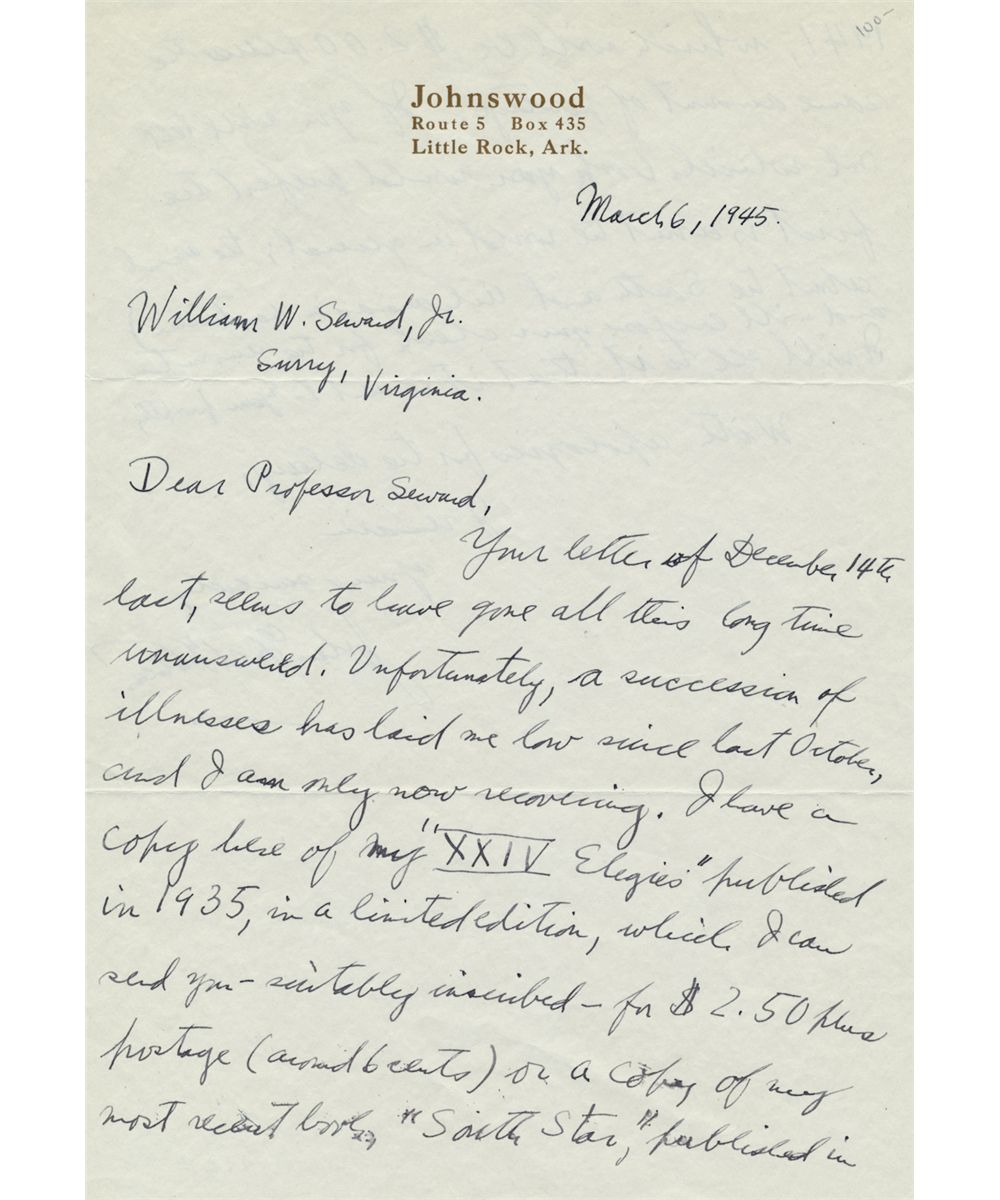 100-
Johnswood
Route 5 Box 435
Little Rock, Ark.
March 6, 1945.
William W. Seward, Jr.
Surry,
Virginia.
Dear Professor Seward,
Your letter of December 14th
last, seems to have gone all this long time
unanswered. Unfortunately, a succession of
illnesses has laid me low since last October,
and I am only now recovering. I have a
copy here of my "XXIV Elegies" published
in 1935, in a limited edition, which I can
send you - suitably inscribed - for $2.50 plus
postage (around 6 cents) or a copy of my
most recent book, "South Star," published in